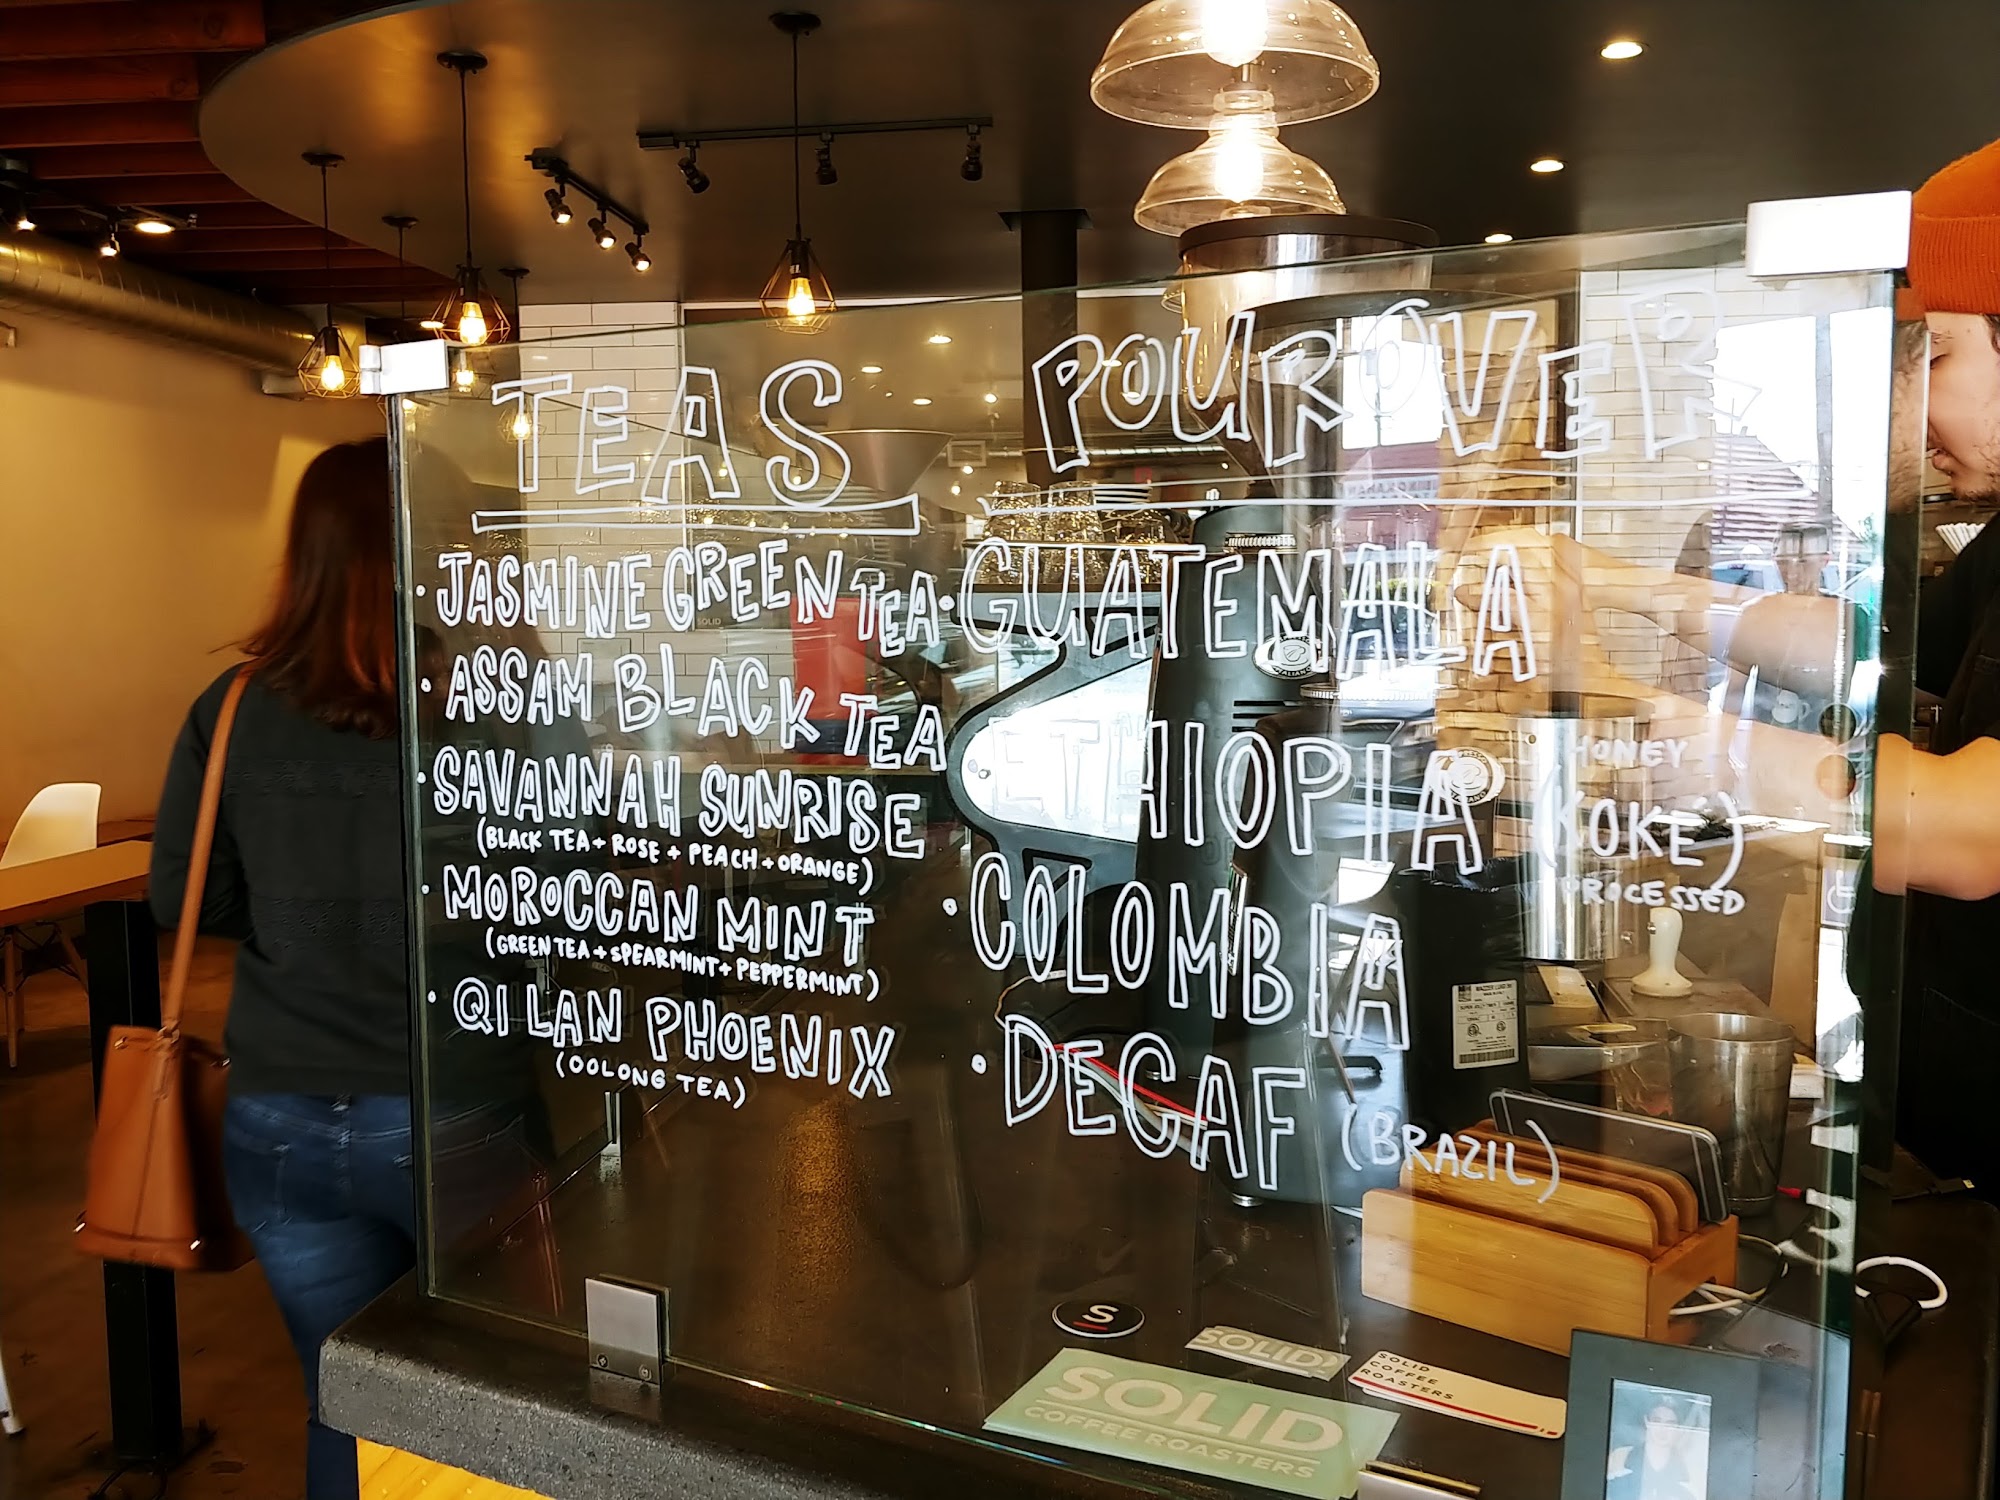 TEAS
• JASMINE GREEN TEA
• ASSAM BLACK TEA
• SAVANNAH SUNRISE
(BLACK TEA + ROSE + PEACH + ORANGE)
• MOROCCAN MINT
(GREEN TEA + SPEARMINT + PEPPERMINT)
• QI LAN PHOENIX
(OOLONG TEA)
POUROVER
• GUATEMALA
ETHIOPIA (KOKE)
HONEY
PROCESSED
• COLOMBIA
• DECAF (BRAZIL)
S
SOLID
SOLID
COFFEE
ROASTERS
SOLID
COFFEE ROASTERS